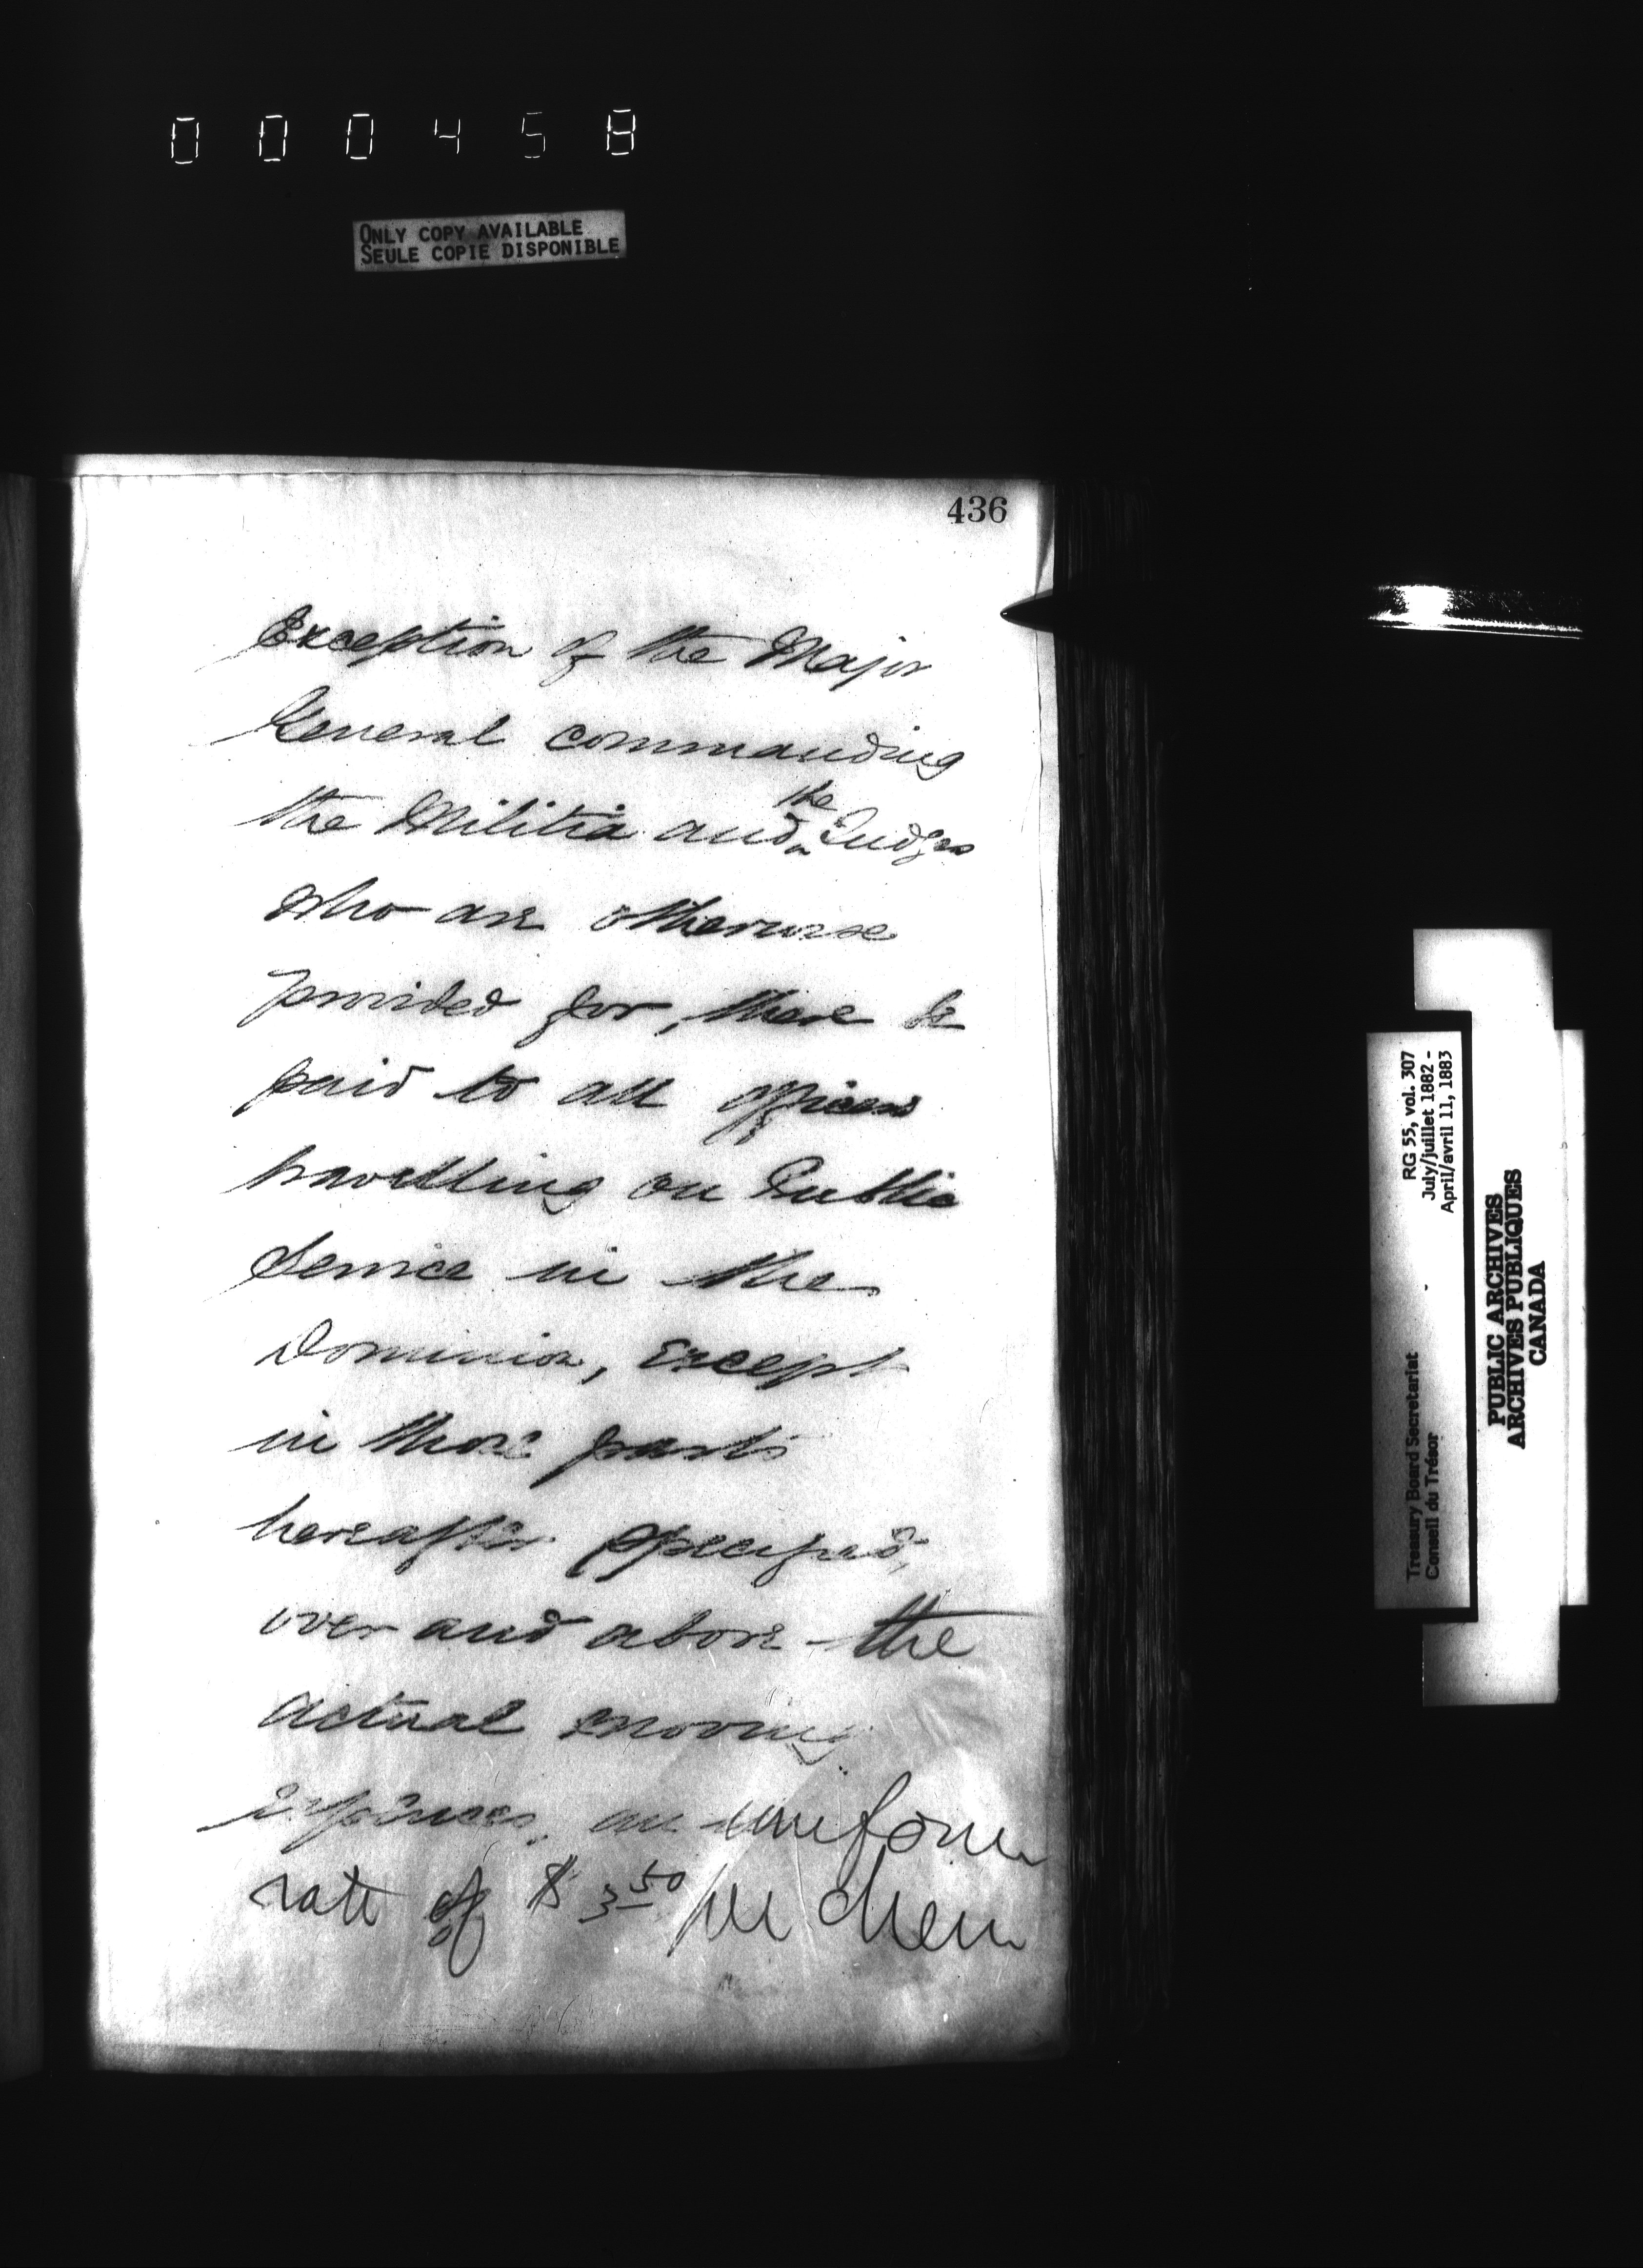 000458
ONLY COPY AVAILABLE
SEULE COPIE DISPONIBLE
436
Exception of the Major
General commanding
the Militia and the Judges
who are otherwise
provided for, there be
paid to all officers
travelling on Public
Service in the
Dominion, except
in those parts
hereafter specified,
over and above the
actual moving
expenses, an uniform
rate of $3.50 per diem
RG 55, vol. 307
July/juillet 1882 -
April/avril 11, 1883
Treasury Board Secretariat
Conseil du Trésor
PUBLIC ARCHIVES
ARCHIVES PUBLIQUES
CANADA